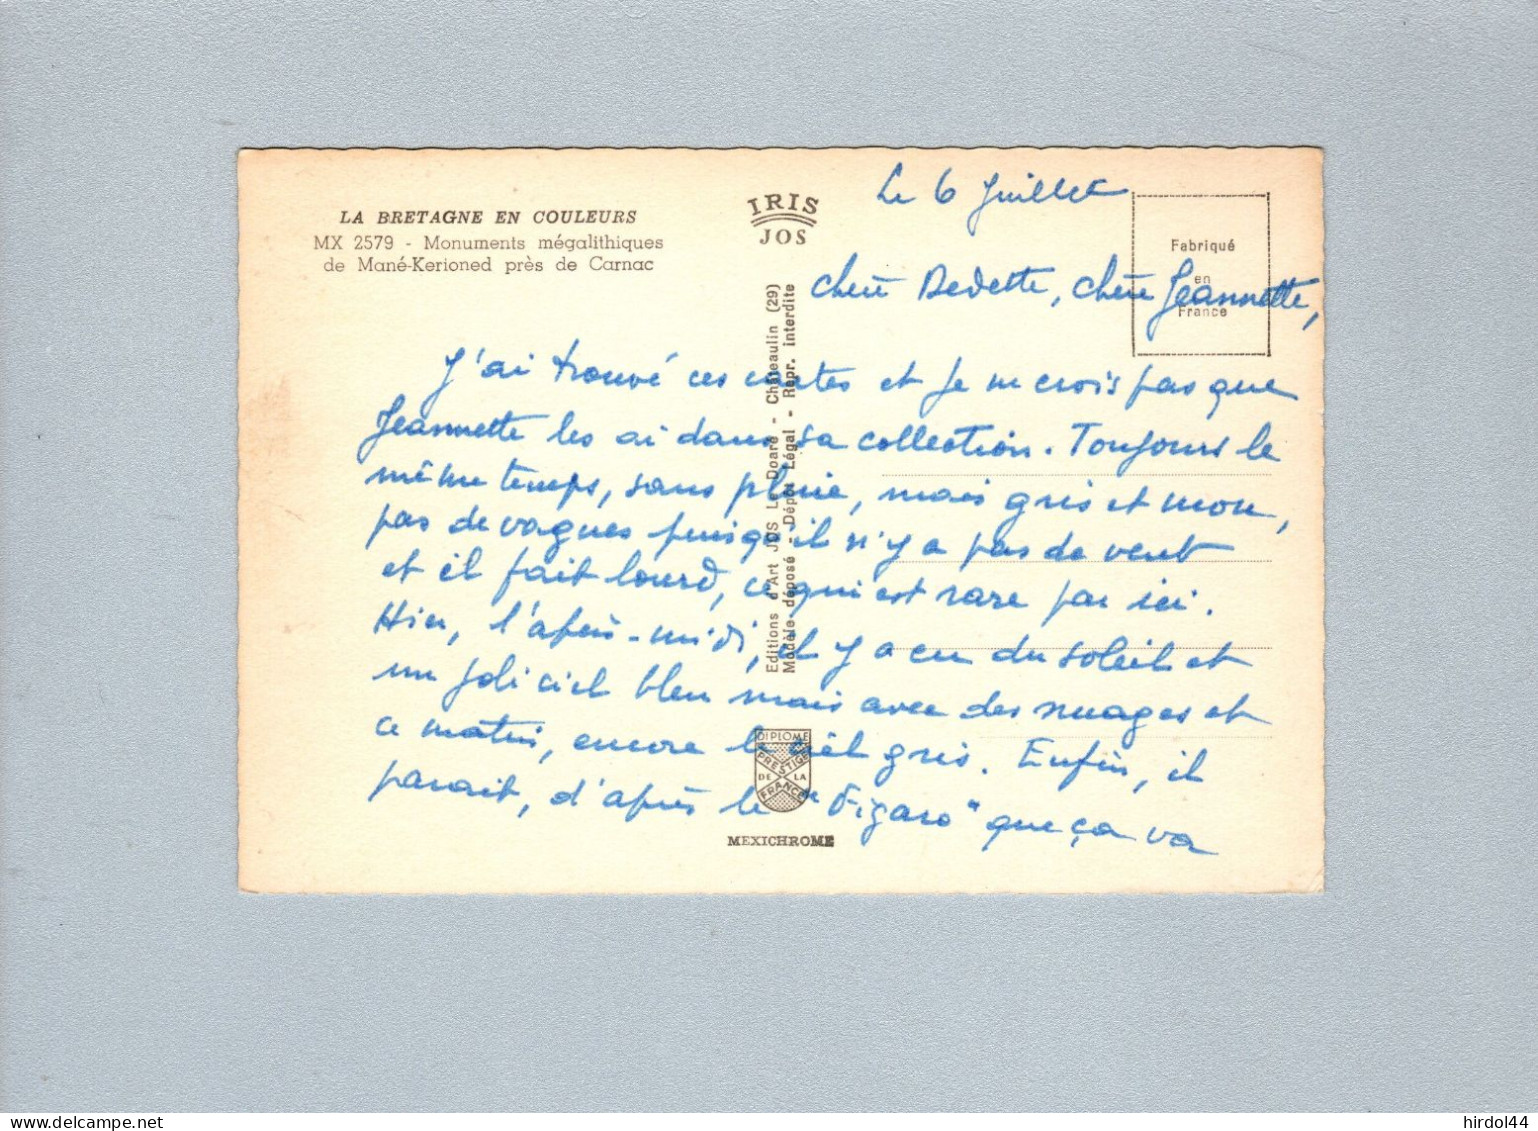 LA BRETAGNE EN COULEURS
MX 2579 - Monuments mégalithiques
de Mané-Kerioned près de Carnac
IRIS
JOS
Fabriqué
en
France
Editions d'Art JOS Le Doaré - Châteaulin (29)
Modèle déposé - Dépôt Légal - Repr. interdite
Le 6 Juillet
Chère Dedette, chère Jeannette,
J'ai trouvé ces cartes et je ne crois pas que
Jeannette les ai dans sa collection. Toujours le
même temps, sans pluie, mais gris et mou,
pas de vagues puisqu'il n'y a pas de vent
et il fait lourd, ce qui est rare par ici.
Hier, l'après-midi, il y a eu du soleil et
un joli ciel bleu mais avec des nuages et
ce matin, encore le ciel gris. Enfin, il
parait, d'après le "Figaro" que ça va
DIPLOME
PRESTIGE
DE LA
FRANCE
MEXICHROME
hirdol44